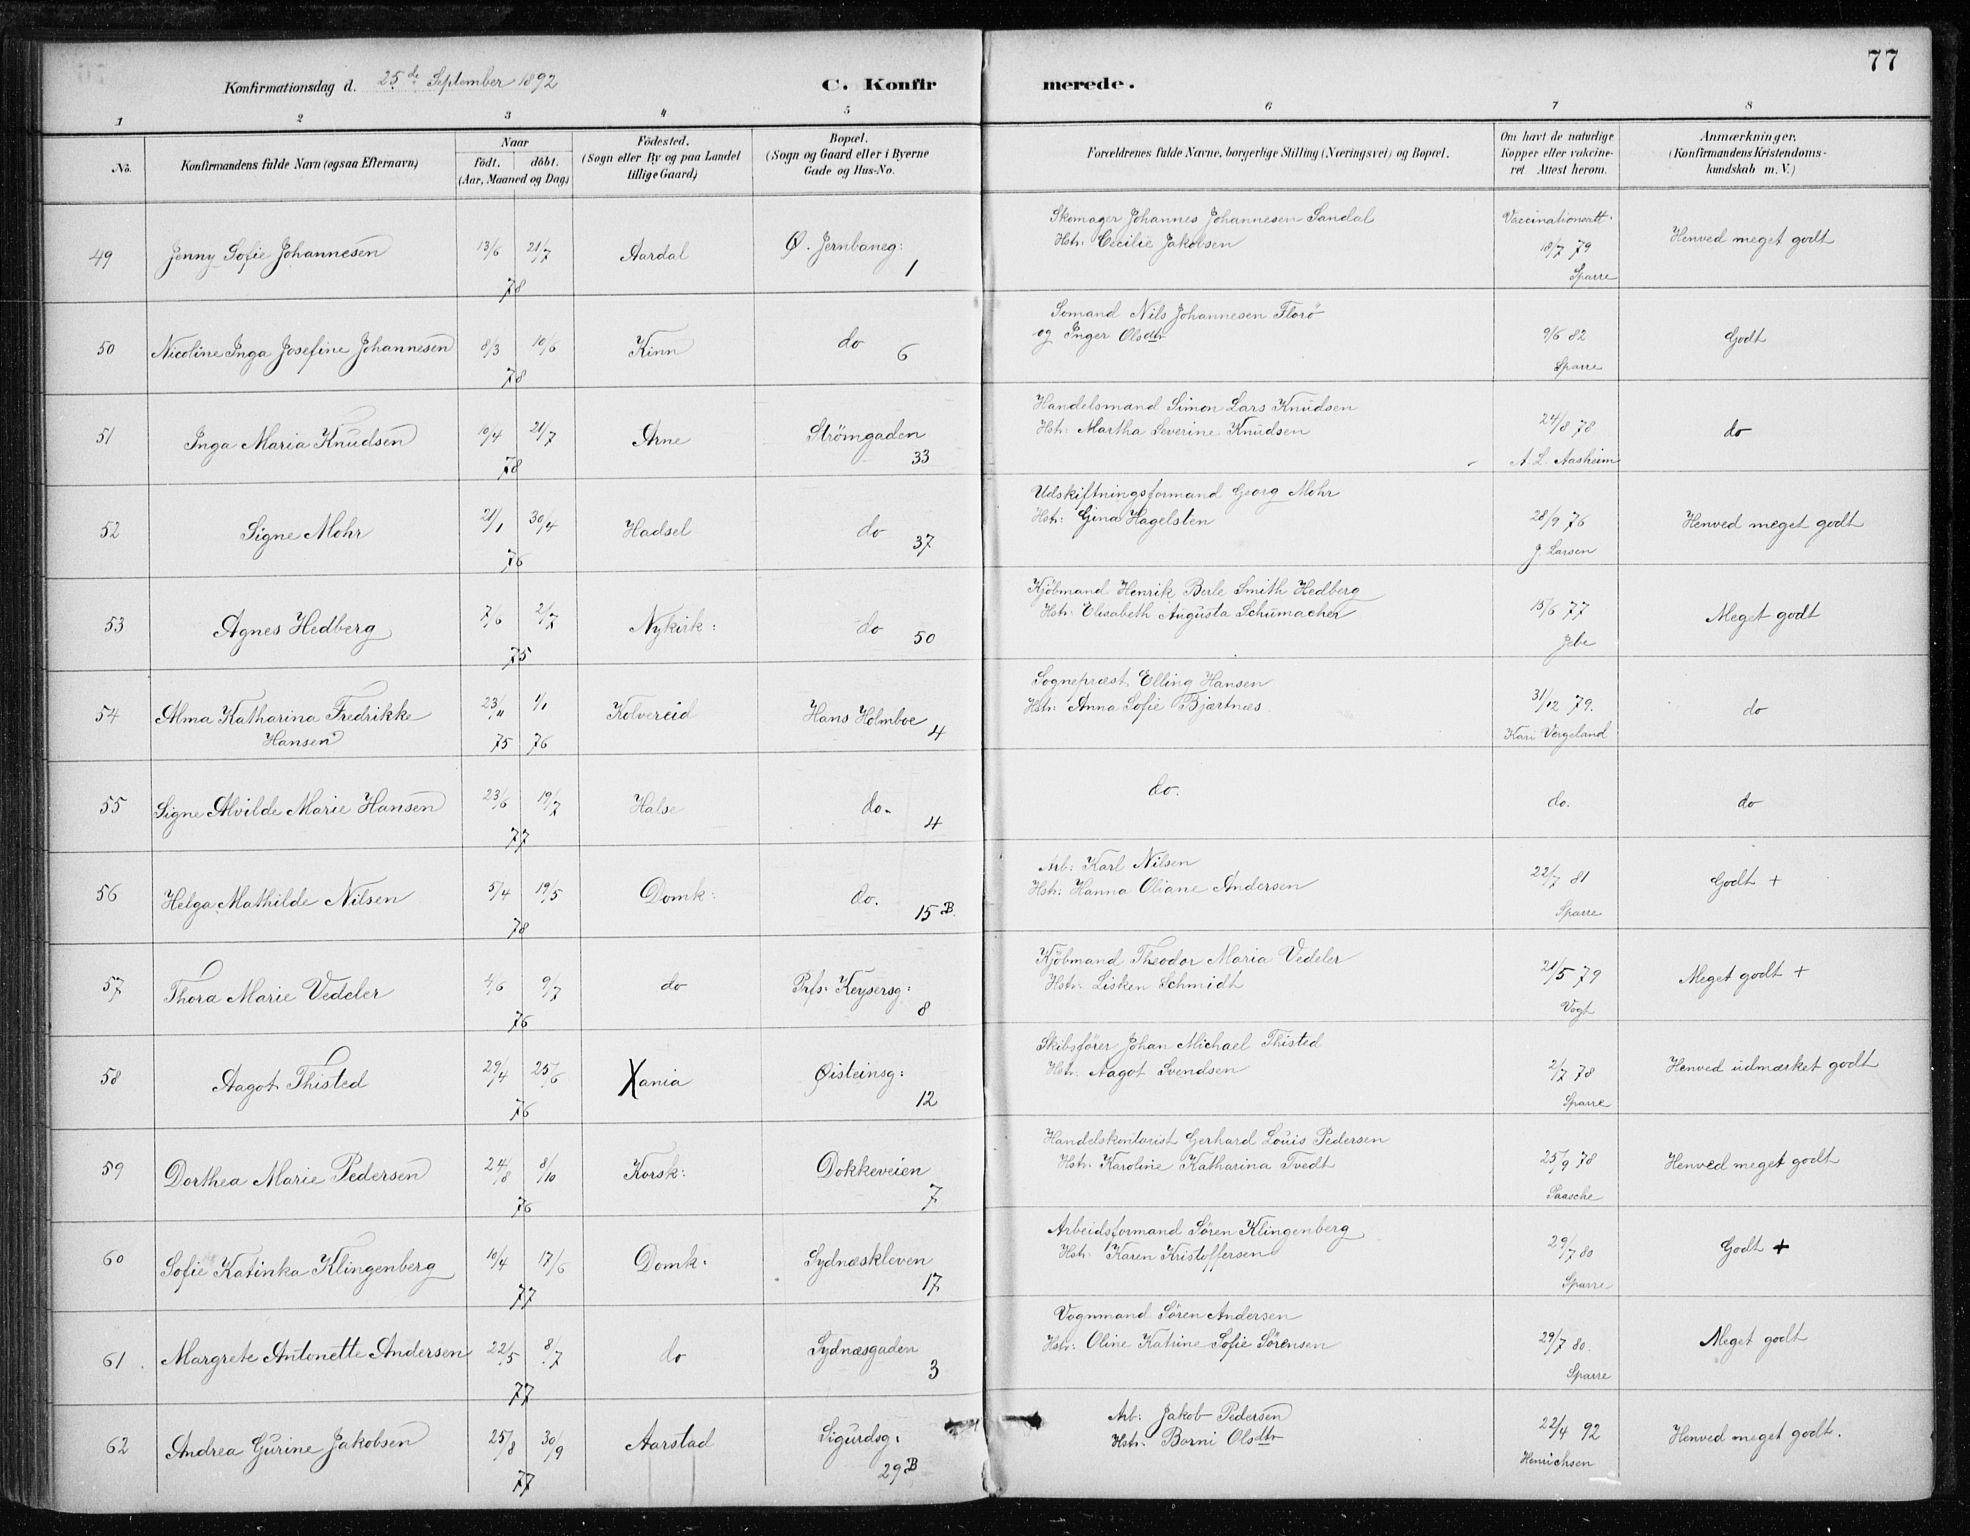 77
Konfirmationsdag d. 25de September 1892
C. Konfir merede.
1 2 3 4 5 6 7 8
No.
Konfirmandens fulde Navn (ogsaa Efternavn)
Naar
födt. döbt.
(Aar, Maaned og Dag)
Födested.
(Sogn eller By og paa Landet
tillige Gaard)
Bopæl.
(Sogn og Gaard eller i Byerne
Gade og Hus-No.
Forældrenes fulde Navne, borgerlige Stilling (Næringsvei) og Bopæl.
Om havt de naturlige
Kopper eller vakcine-
ret. Attest herom.
Anmærkninger.
(Konfirmandens Kristendoms-
kundskab m. V.)
49 Jenny Sofie Johannesen 13/6 21/7 78 Aardal Ø. Jernbaneg: 1
Skomager Johannes Johannesen Sandal
Hstr: Cecilie Jakobsen
Vaccinationsatt.
18/7 79
Sparre
Henved meget godt
50 Nicoline Inga Josefine Johannesen 8/3 10/6 78 Kinn do 6
Sømand Nils Johannesen Florö
og Inger Olsdtr
9/6 82
Sparre
Godt
51 Inga Maria Knudsen 10/4 21/7 78 Arne Strömgaden 33
Handelsmand Simon Lars Knudsen
Hstr: Martha Severine Knudsen
24/8 78
A. L. Aasheim
do
52 Signe Mohr 21/1 30/4 76 Hadsel do 37
Udskiftningsformand Georg Mohr
Hstr: Gina Hagelsten
28/9 76
J. Larsen
Henved meget godt
53 Agnes Hedberg 7/6 2/7 75 Nykirk: do 50
Kjöbmand Henrik Berle Smith Hedberg
Hstr: Elisabeth Augusta Schumacher
15/6 77
Jebe
Meget godt
54 Alma Katharina Fredrikke
Hansen 23/11 75 1/1 76 Kolvereid Hans Holmboe 4
Sognepræst Elling Hansen
Hstr: Anna Sofie Bjærtnæs.
31/12 79.
Kari Vergeland
do
55 Signe Alvilde Marie Hansen 23/6 19/7 77 Halse do. 4
do.
do.
do
56 Helga Mathilde Nilsen 5/4 19/5 78 Domk: do. 15 B.
Arb: Karl Nilsen
Hstr: Hanna Oliane Andersen
22/7 81
Sparre
Godt +
57 Thora Marie Vedeler 4/6 9/7 76 do Prfs: Keysersg: 8
Kjöbmand Theodor Maria Vedeler
Hstr: Lisken Schmidt
21/5 79
Vogt
Meget godt +
58 Aagot Thisted 29/4 25/6 76 Xania Øisteinsg: 12
Skibsfører Johan Michael Thisted
Hstr: Aagot Svendsen
2/7 78
Sparre
Henved udmærket godt
59 Dorthea Marie Pedersen 24/8 8/10 76 Korsk: Dokkeveien 7
Handelskontorist Gerhard Louis Pedersen
Hstr: Karoline Katharina Tvedt
25/9 78
Paasche
Henved meget godt
60 Sofie Katinka Klingenberg 10/4 17/6 77 Domk: Sydnæskleven 17
Arbeidsformand Søren Klingenberg
Hstr: Karen Kristoffersen
29/7 80
Sparre
Godt +
61. Margrete Antonette Andersen 22/5 8/7 77 do Sydnæsgaden 3
Vognmand Søren Andersen
Hstr: Oline Katrine Sofie Sørensen
29/7 80.
Sparre
Meget godt
62 Andrea Gurine Jakobsen 25/8 30/9 77 Aarstad Sigurdsg: 29 B
Arb: Jakob Pedersen
Hstr: Borni Olsdtr
22/4 92
Henrichsen
Henved meget godt.